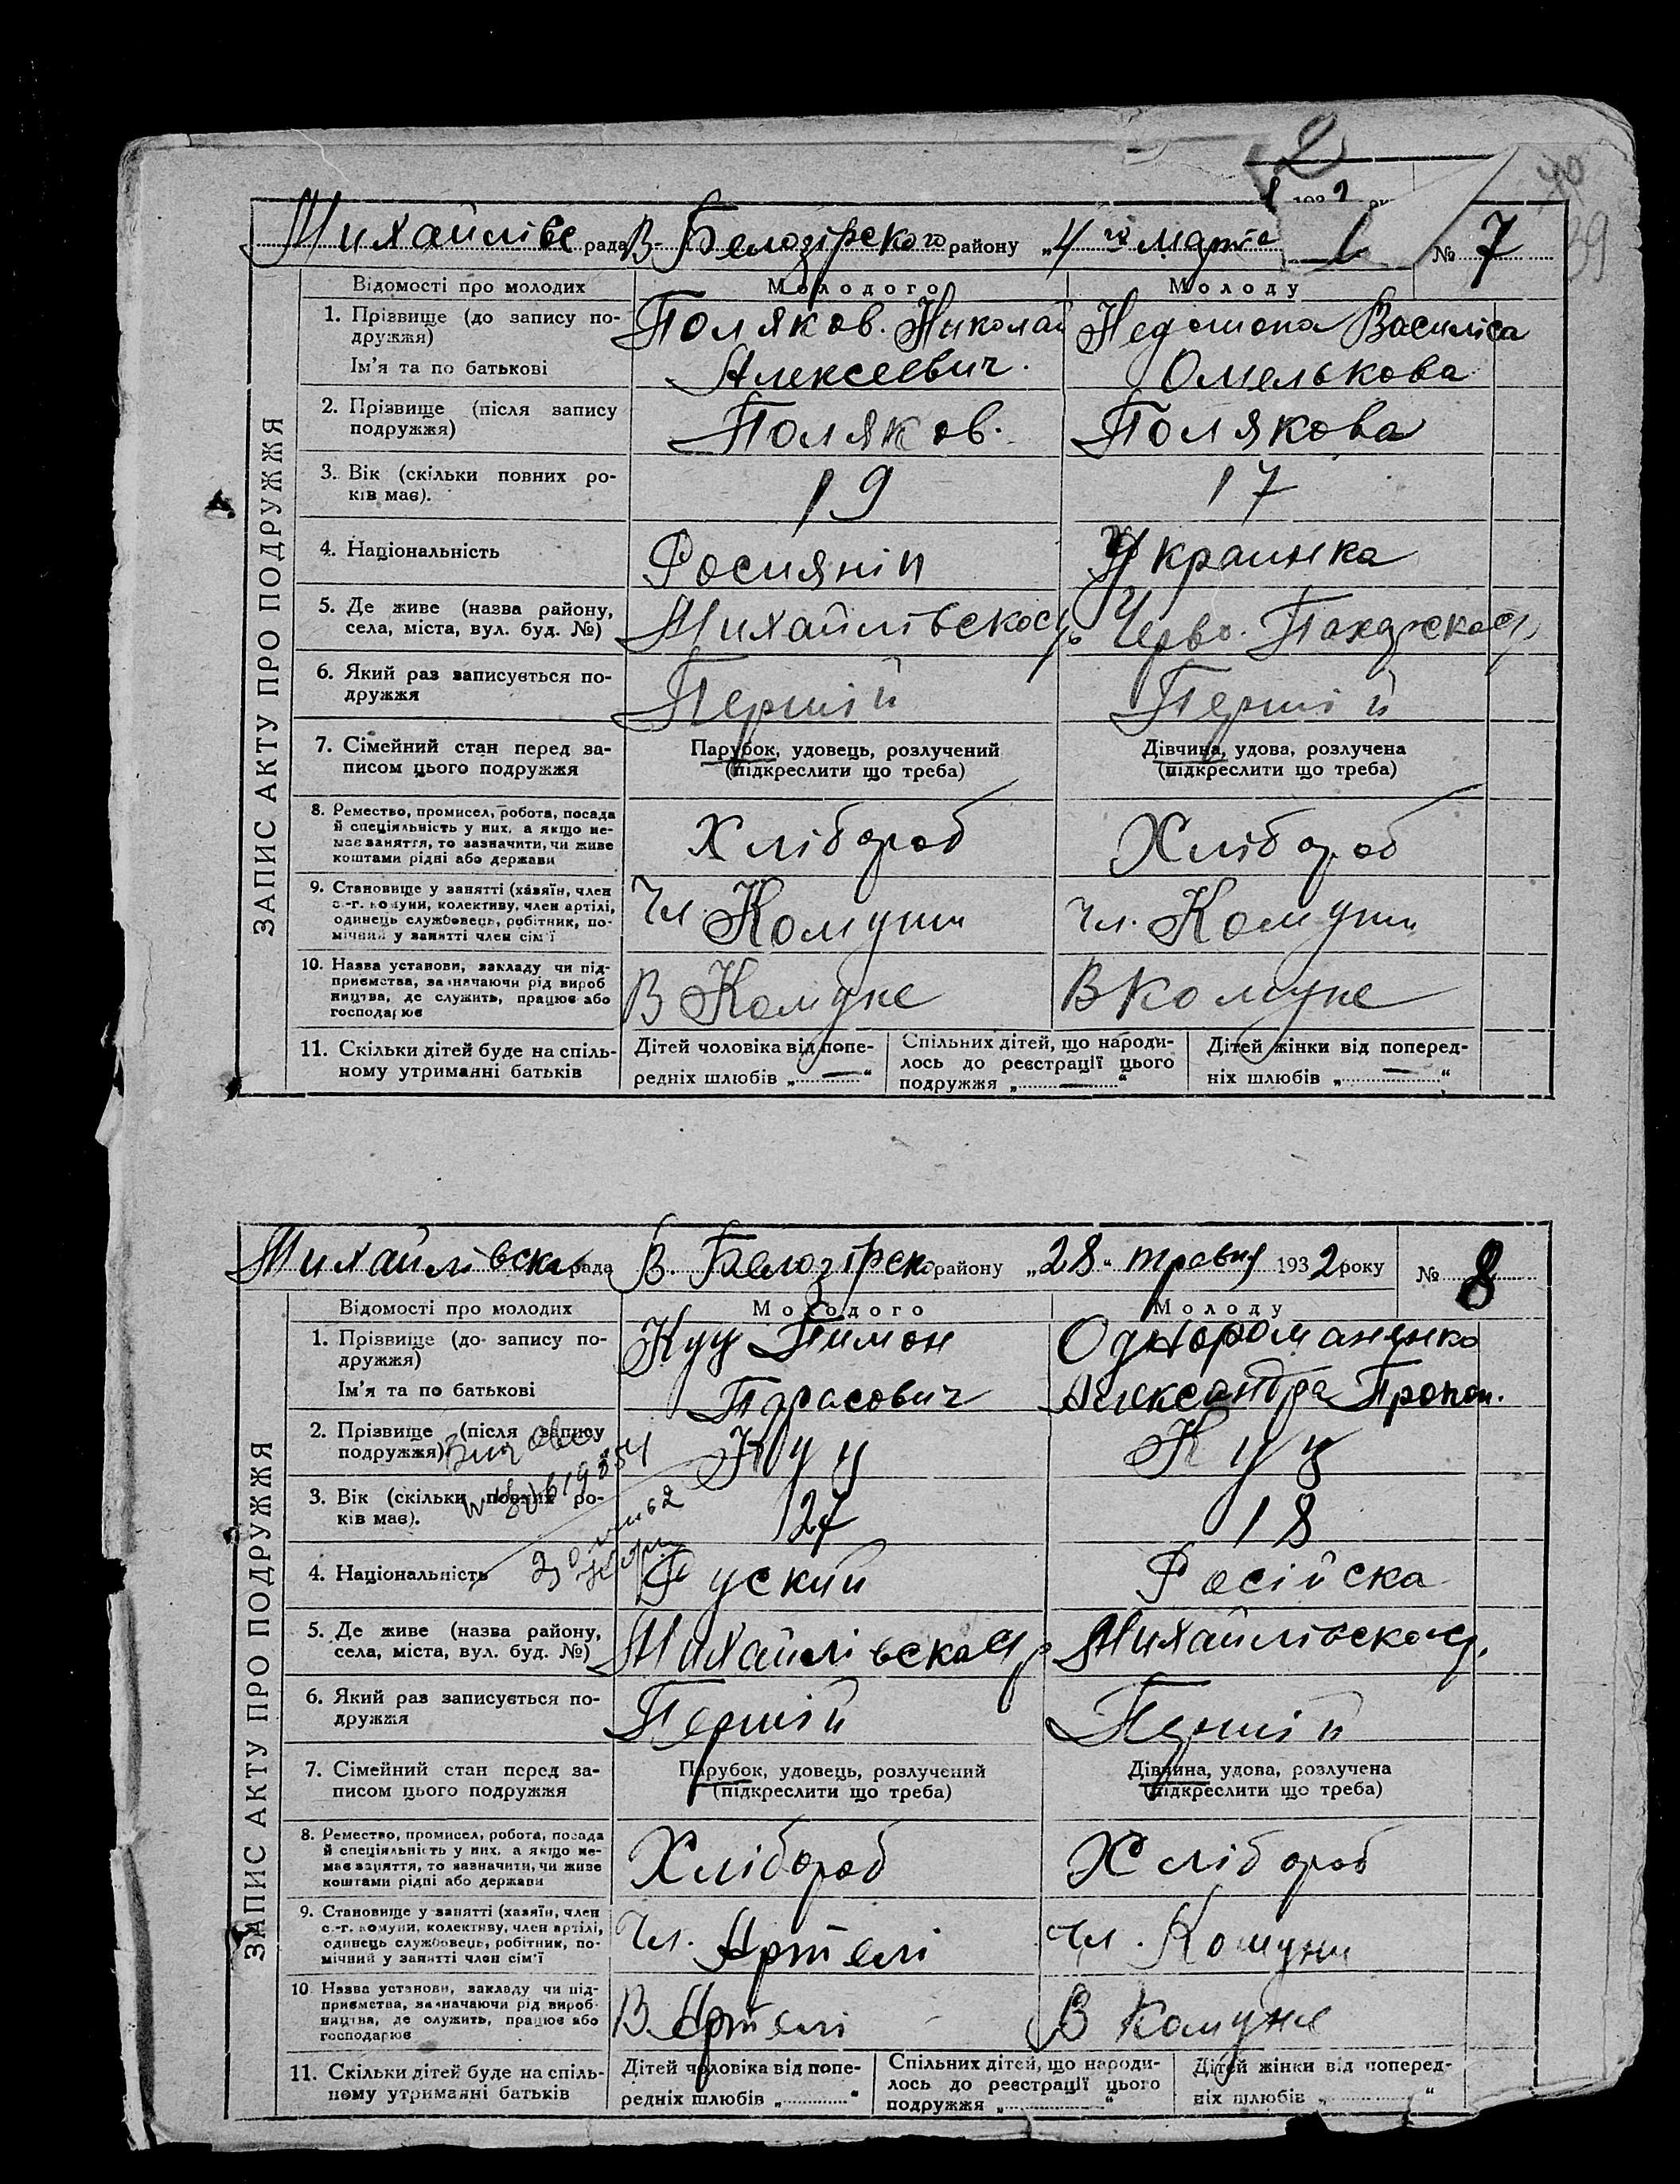 2
40
39
Михайлівс рада В-Белозірского району „4 го марта 1 № 7
ЗАПИС АКТУ ПРО ПОДРУЖЖЯ
Відомості про молодих Молодого Молоду
1. Прізвище (до запису по- Поляков. Николай Василіса
дружжя)
Ім'я та по батькові Алексеевич. Омелькова
2. Прізвище (після запису Поляков. Полякова
подружжя)
3. Вік (скільки повних ро- 19 17
ків має).
4. Національність Росиянін Украинка
5. Де живе (назва району, Михайлівскос/р Черво.
села, міста, вул. буд. №)
6. Який раз записується по- Перший Перший
дружжя
7. Сімейний стан перед за- Парубок, удовець, розлучений Дівчина, удова, розлучена
писом цього подружжя (підкреслити що треба) (підкреслити що треба)
8. Ремество, промисел, робота, посада Хлібороб Хлібороб
й спеціяльність у них, а якщо не-
має заняття, то зазначити, чи живе
коштами рідні або держави
9. Становище у занятті (хазяїн, член Чл. Комуни Чл. Комуни
с.-г. комуни, колективу, член артілі,
одинець службовець, робітник, по-
мічний у занятті член сім'ї
10. Назва установи, закладу чи під- В Комуне В Комуне
приємства, зазначаючи рід вироб
ництва, де служить, працює або
господарює
11. Скільки дітей буде на спіль- Дітей чоловіка від попе- Спільних дітей, що народи- Дітей жінки від поперед-
ному утриманні батьків редніх шлюбів „ — “ лось до реєстрації цього ніх шлюбів „ — “
подружжя „ — “
Михайлівска рада В. Белозірск. району „28„ травня 1932 року № 8
ЗАПИС АКТУ ПРО ПОДРУЖЖЯ
Відомості про молодих Молодого Молоду
1. Прізвище (до запису по- Куц Тимон Однороманенко
дружжя)
Ім'я та по батькові Тарасович Александра Прокоп.
2. Прізвище (після запису Куц Куц
подружжя)
3. Вік (скільки повних ро- 27 18
ків має).
4. Національність Руский Російска
5. Де живе (назва району, Михайлівскас/р Михайлівскас/р.
села, міста, вул. буд. №)
6. Який раз записується по- Перший Перший
дружжя
7. Сімейний стан перед за- Парубок, удовець, розлучений Дівчина, удова, розлучена
писом цього подружжя (підкреслити що треба) (підкреслити що треба)
8. Ремество, промисел, робота, посада Хлібороб Хлібороб
й спеціяльність у них, а якщо не-
має заняття, то зазначити, чи живе
коштами рідні або держави
9. Становище у занятті (хазяїн, член Чл. Артелі Чл. Комуни
с.-г. комуни, колективу, член артілі,
одинець службовець, робітник, по-
мічний у занятті член сім'ї
10. Назва установи, закладу чи під- В Артелі В Комуне
приємства, зазначаючи рід вироб-
ництва, де служить, працює або
господарює
11. Скільки дітей буде на спіль- Дітей чоловіка від попе- Спільних дітей, що народи- Дітей жінки від поперед-
ному утриманні батьків редніх шлюбів „ “ лось до реєстрації цього ніх шлюбів „ “
подружжя „ “